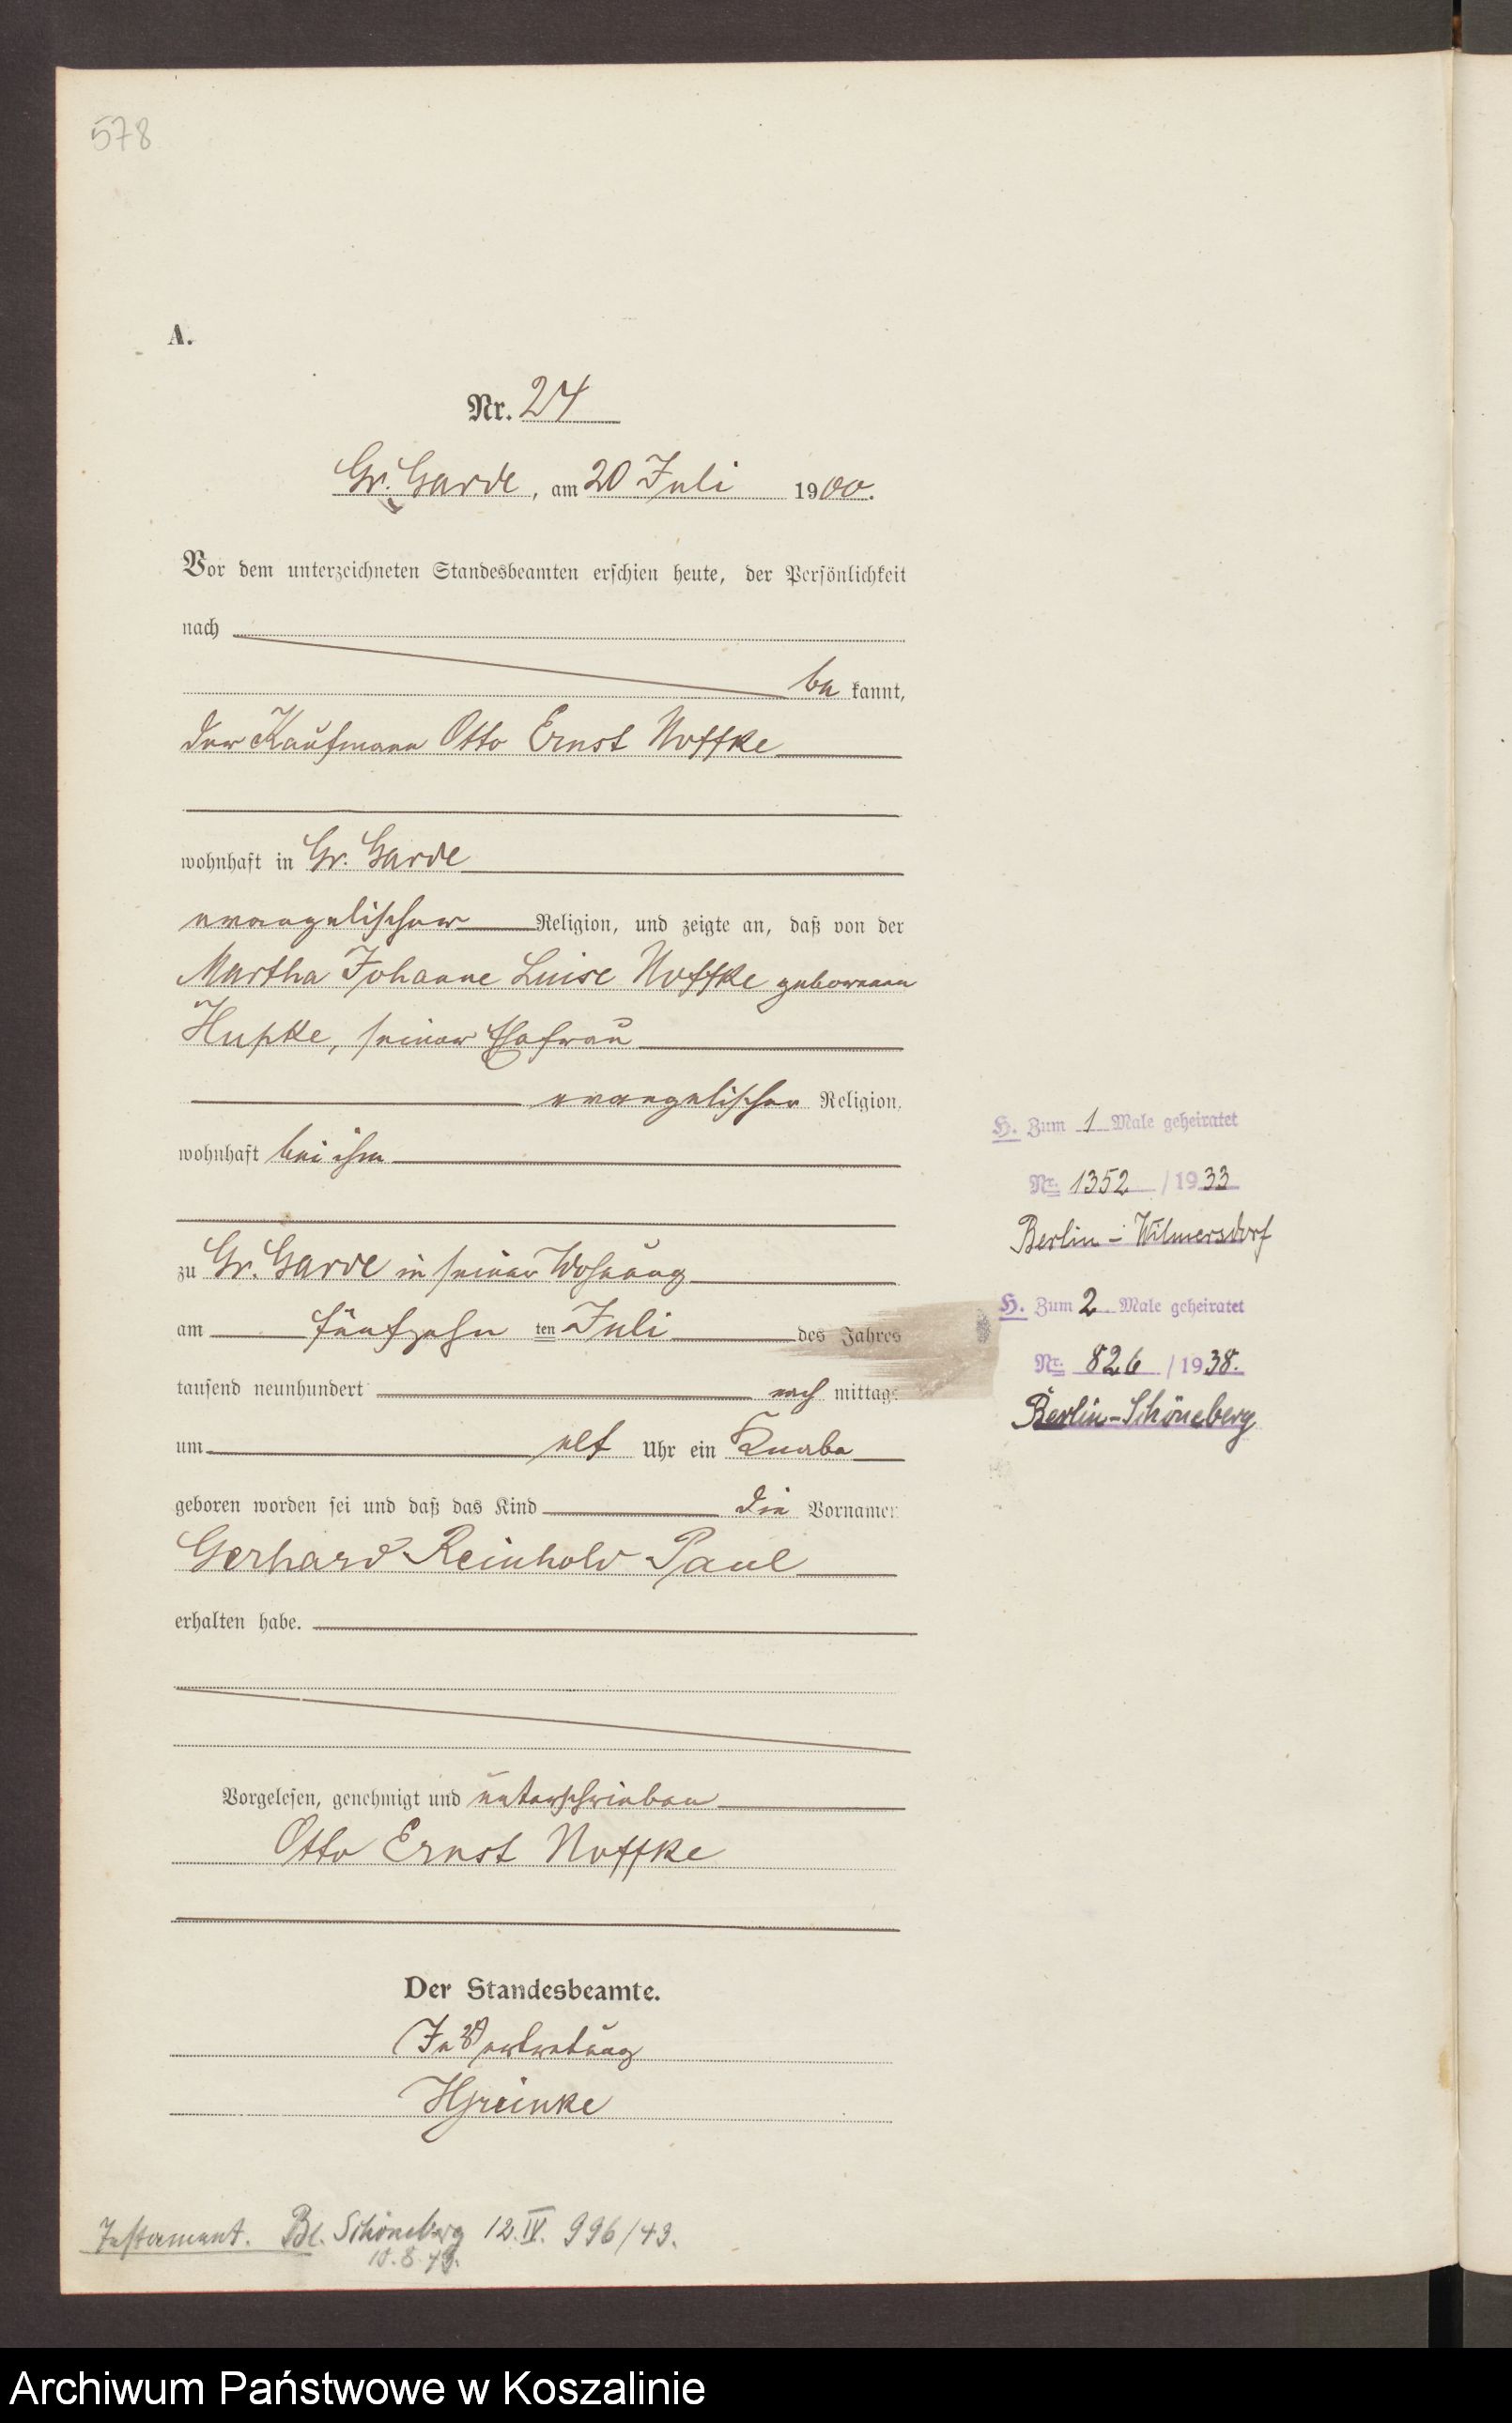 578
A.
Nr. 24
Gr. Garde, am 20 Juli 1900.
Vor dem unterzeichneten Standesbeamten erschien heute, der Persönlichkeit
nach
be kannt,
der Kaufmann Otto Ernst Noffke
wohnhaft in Gr. Garde
evangelischer Religion, und zeigte an, daß von der
Martha Johanne Luise Noffke geborenen
Hupke, seiner Ehefrau
evangelischer Religion,
wohnhaft bei ihm
zu Gr. Garde in seiner Wohnung
am fünfzehn ten Juli des Jahres
tausend neunhundert nach mittags
um elf Uhr ein Knabe
geboren worden sei und daß das Kind die Vornamen
Gerhard Reinhold Paul
erhalten habe.
Vorgelesen, genehmigt und unterschrieben
Otto Ernst Noffke
Der Standesbeamte.
In Vertretung
H. Zum 1 Male geheiratet
Nr. 1352 / 1933
Berlin-Wilmersdorf
H. Zum 2 Male geheiratet
Nr. 826 / 1938.
Berlin-Schöneberg
Testament. Bl. Schöneberg 12. IV. 996/43.
10.8.43.
Archiwum Państwowe w Koszalinie